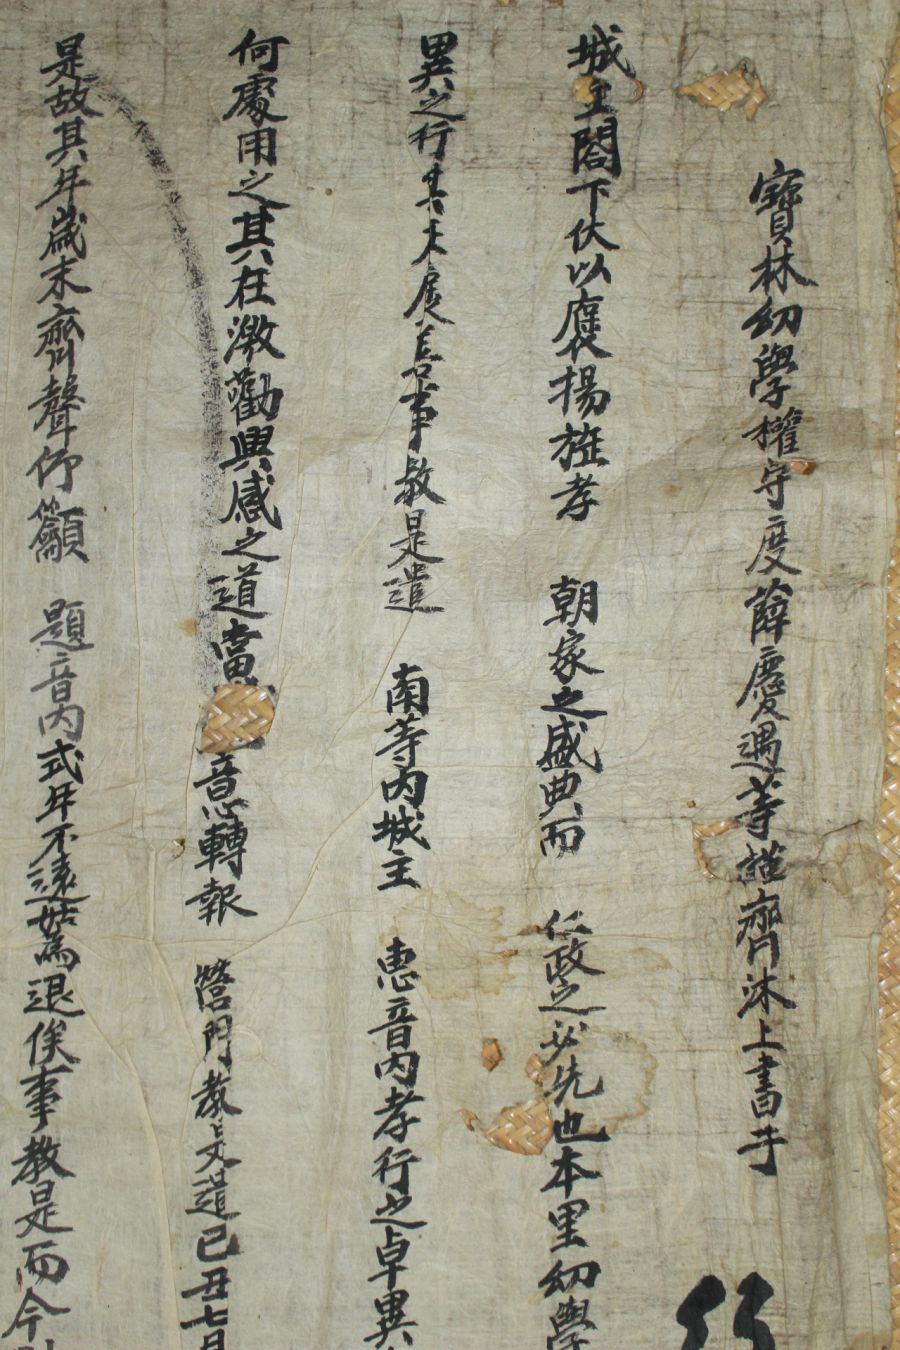 寶林幼學權守度薛慶遇等謹齊沐上書于
城主閤下伏以褒揚旌孝 朝家之盛典而 仁政之必先也本里幼學
異之行其來廣善事教是遣 南等內城主 惠音內孝行之卓異
何處用之其在激勸興感之道當 意轉報 營門教是遣己丑七月
是故其年歲末齊聲仰籲 題音內式年不遠姑爲退俟事教是而今